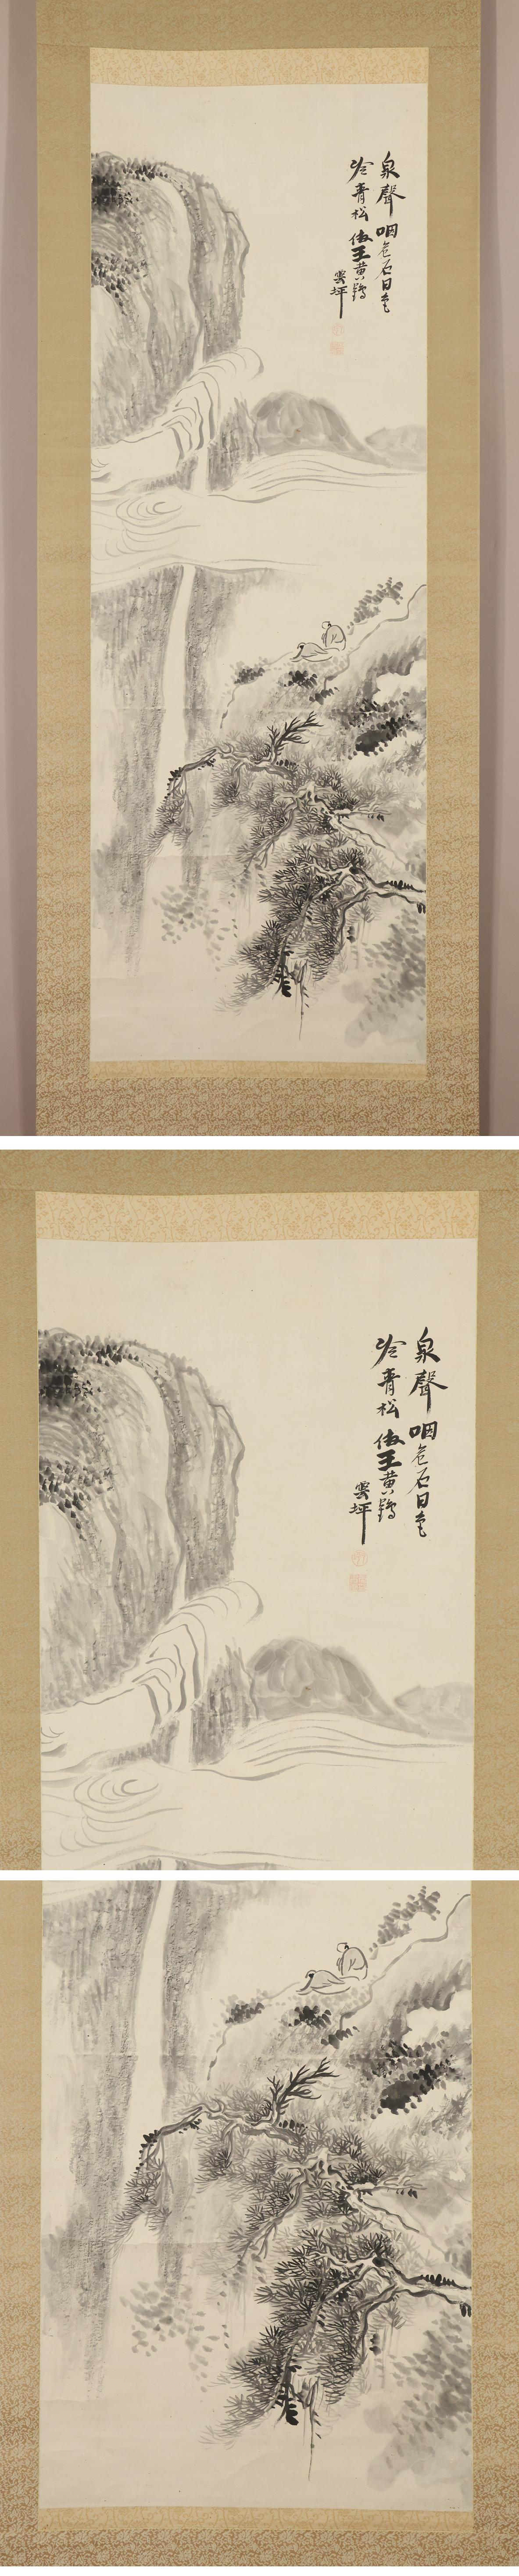 泉聲咽危石日色
冷青松倣王黄鶴
雲坪
泉聲咽危石日色
冷青松倣王黄鶴
雲坪